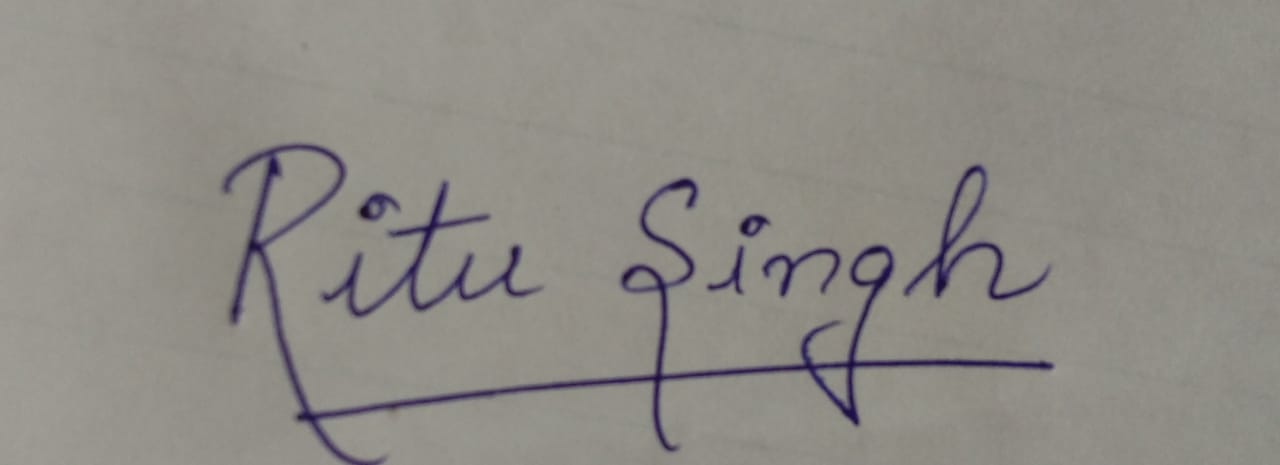 Ritu Singh